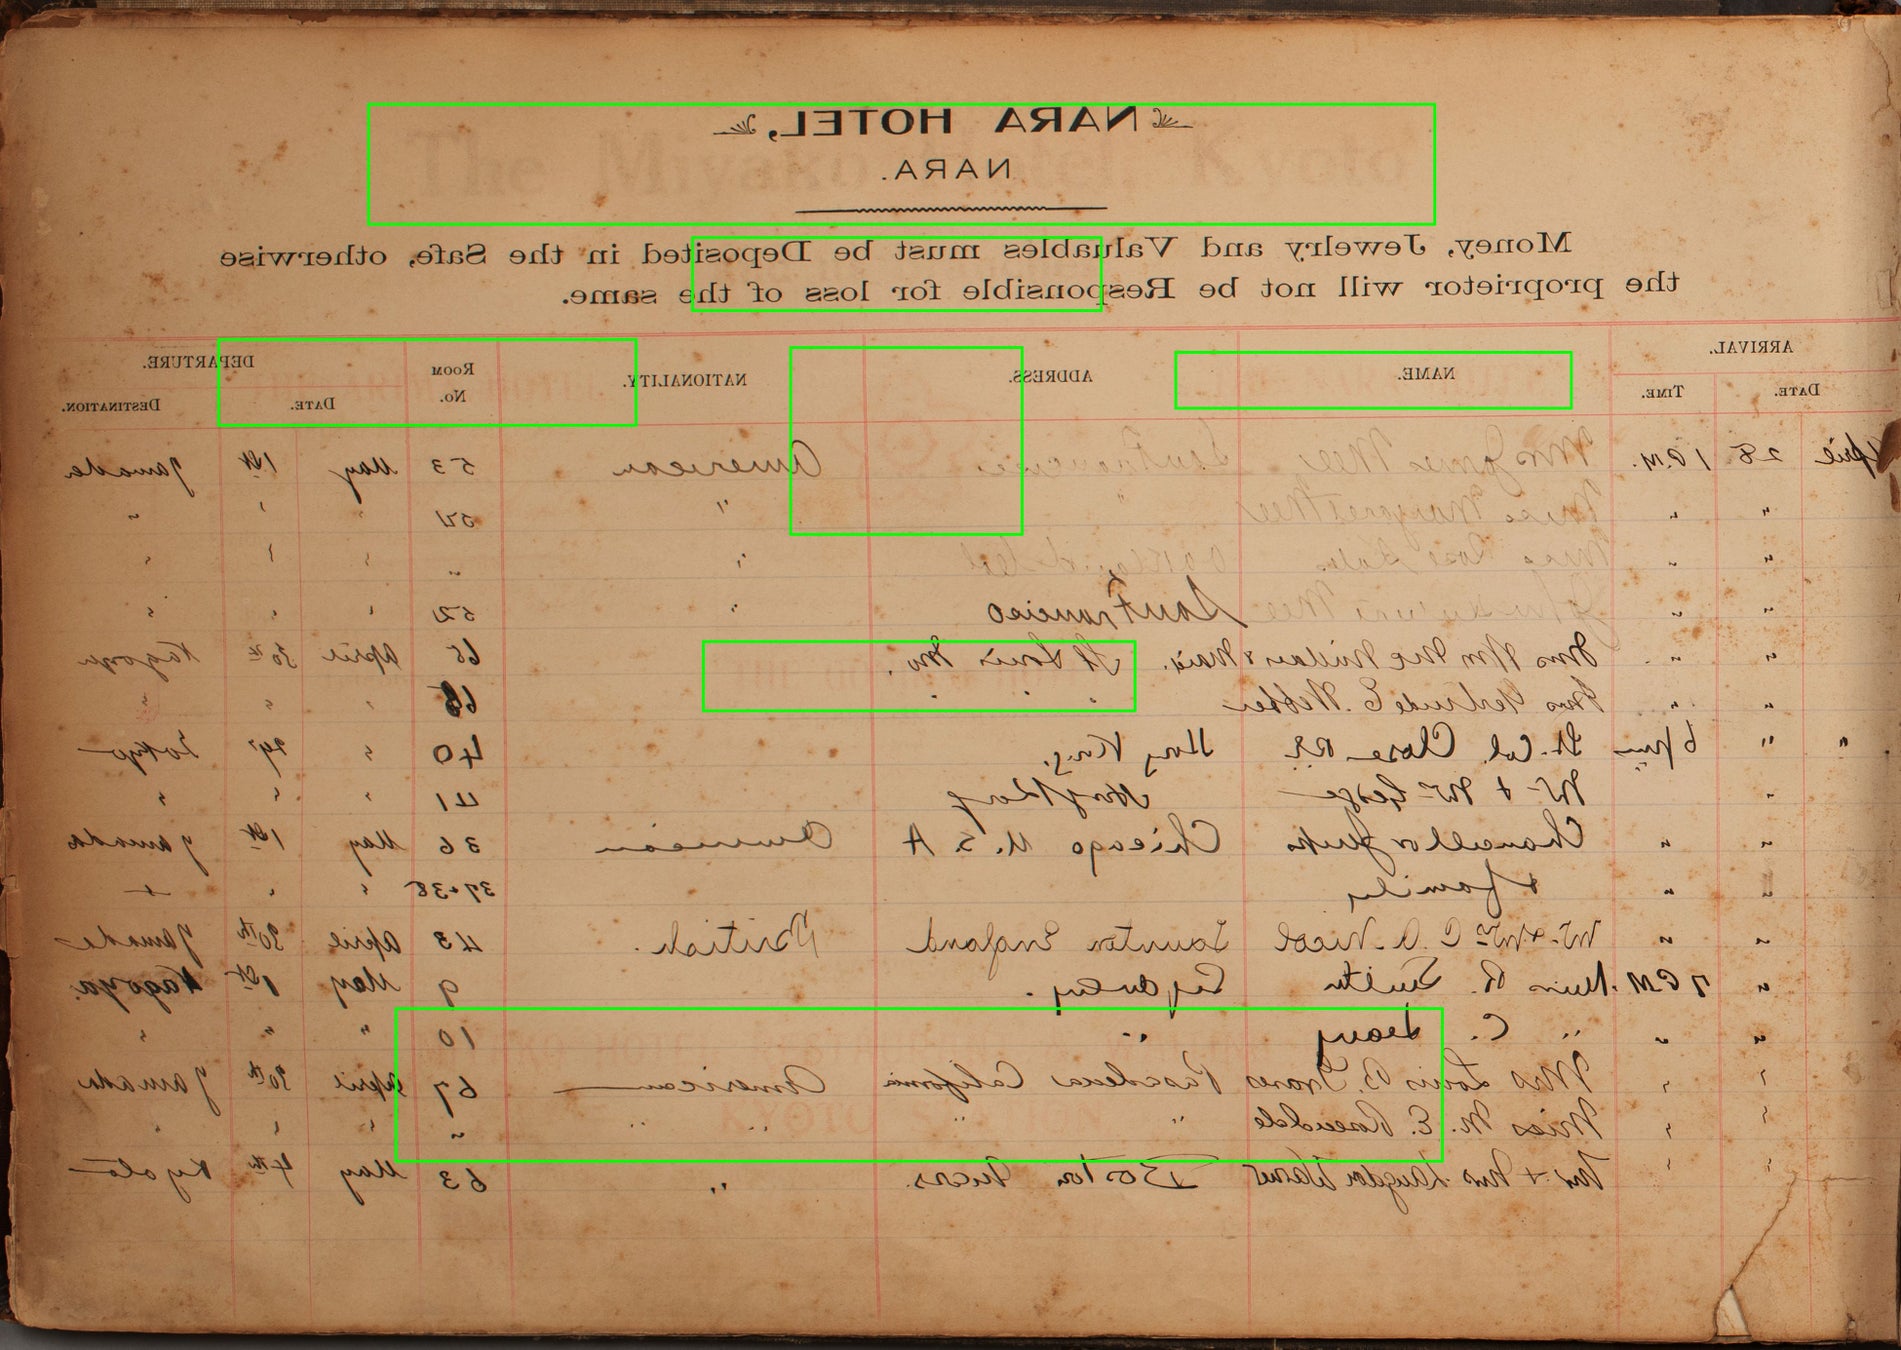 The Miyako Hotel, Kyoto
NARA HOTEL,
NARA.
Money, Jewelry and Valuables must be Deposited in the Safe, otherwise
the proprietor will not be Responsible for loss of the same.
ARRIVAL. NAME. ADDRESS. NATIONALITY. ROOM No. DEPARTURE.
DATE. TIME. DATE. DESTINATION.
April 28 1 P.M. Mrs James Mee San Francisco American 53 May 1st Yamada
" " Miss Margaret Mee " " 52 " " "
" " Miss Rose " " " " "
" " Mee San Francisco " 52 " " "
" " Mrs Wm McMillan & Maid. St Louis Mo. 65 April 30th Nagoya
" " Mrs Gertrude E. Webber " " 65 " " "
" " 6 pm Lt. Col. Close R.E. Hong Kong. 40 " 29 Tokyo
" Mr & Mrs Hong Kong 41 " " "
" " Chancellor Chicago U. S. A American 36 May 1st Yamada
" " & family 37+38 " " "
" " Mr & Mrs C. A. Nicol Taunton England British. 43 April 30th Yamada
" 7 P.M. Miss R. Smith Sydney. 9 May 1st Nagoya
" " " C. Leary " 10 " " "
" " Mrs Louis B. Graves Pasadena California American 67 April 30th Yamada
" " Miss M. E. " " " " " " " "
" " Mr & Mrs Langdon Warner Boston Mass. " 63 May 4th Kyoto